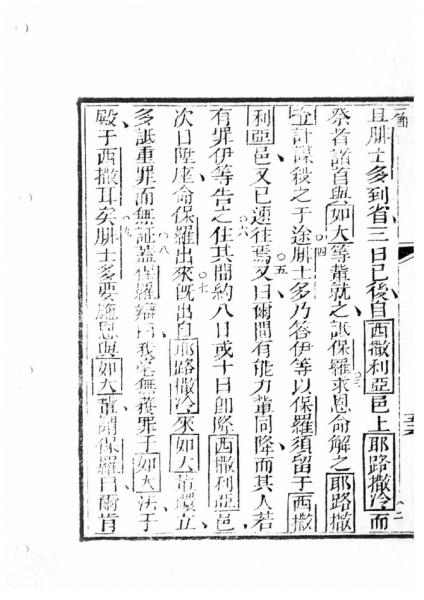 且腓士多到省三日已後自西撒利亞邑上耶路撒冷而
祭者諸首與如大等輩就之訴保羅求恩命解之耶路撒
計謀殺之于途腓士多乃答伊等以保羅須留于西撒
利亞邑又已速往焉又曰爾間有能力輩同降而其人若
有罪伊等告之住其間約八日或十日卽降西撒利亞邑
次日陞座命保羅出來旣出自耶路撒冷來如大輩環立
多訴重罪而無証蓋保羅辯曰我毫無獲罪于如大法于
殿于西撒耳矣腓士多要施恩與如大輩謂保羅曰爾肯